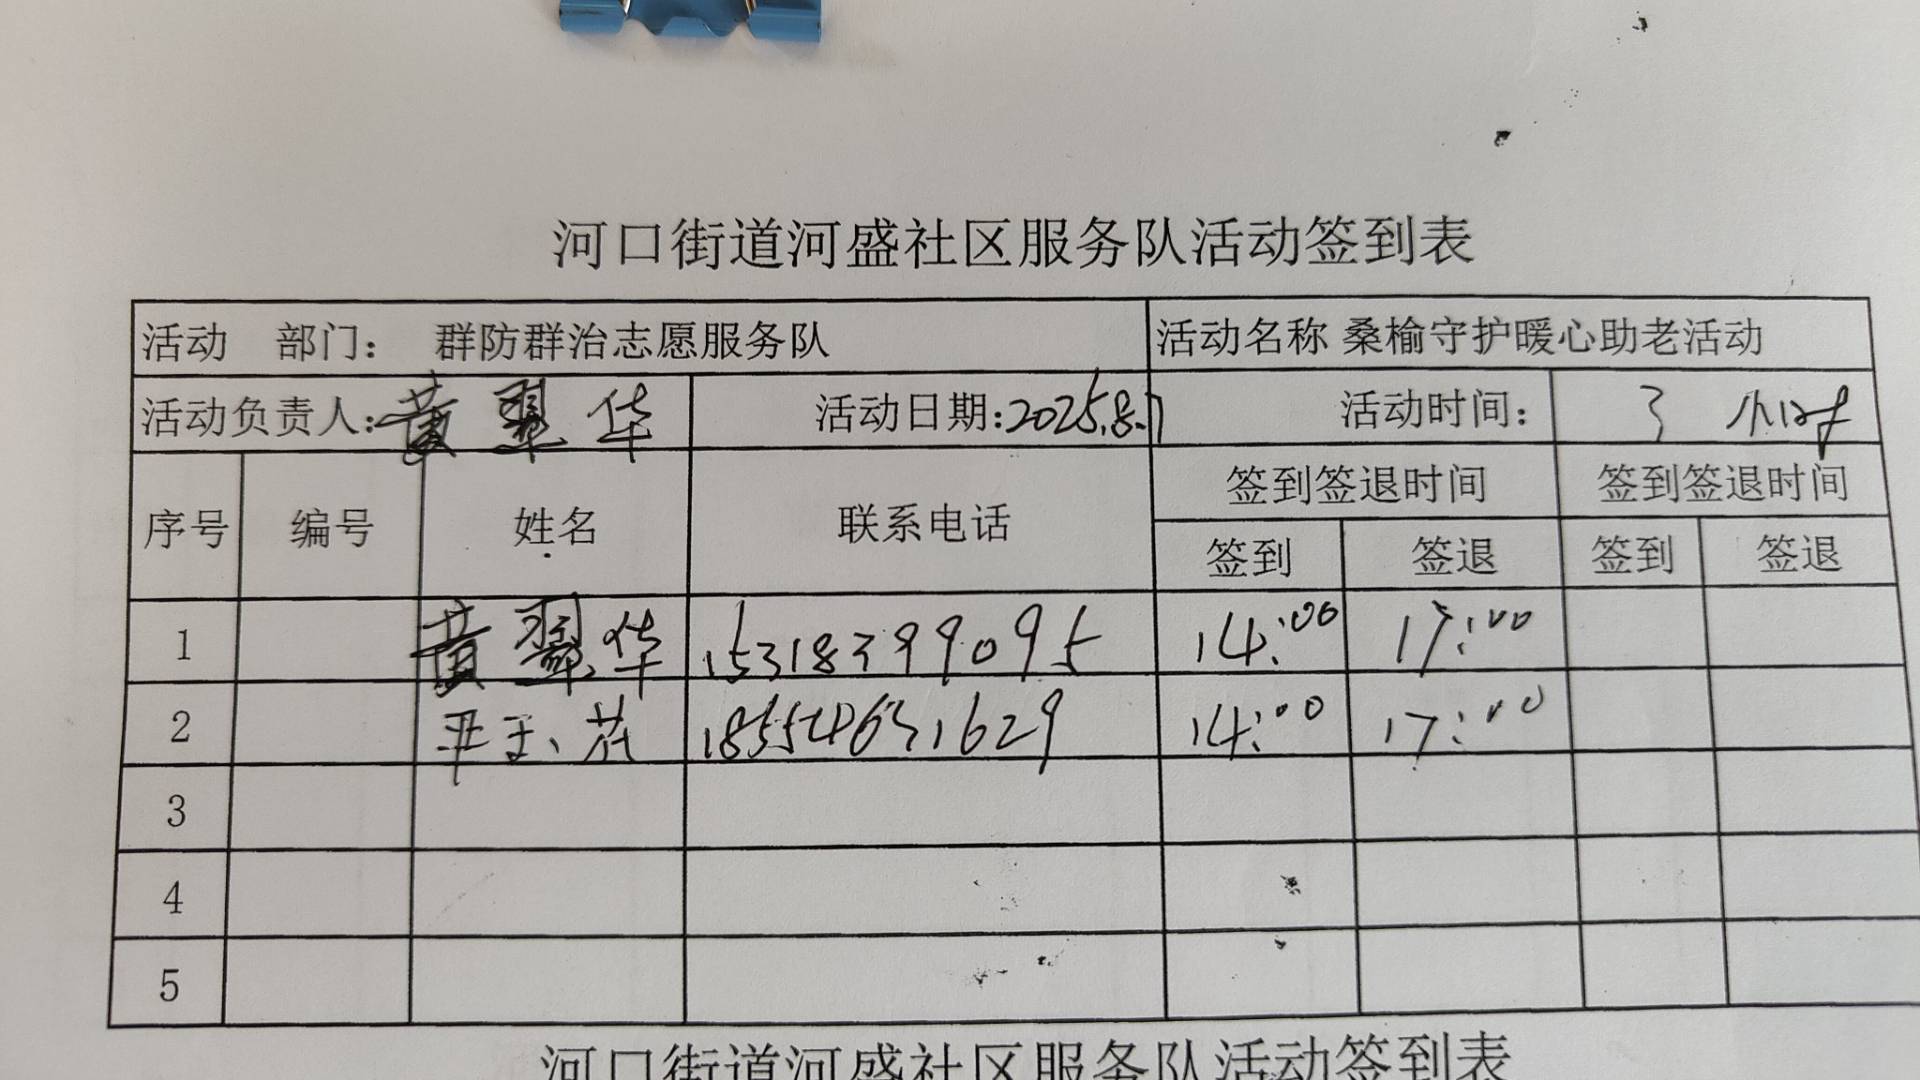 河口街道河盛社区服务队活动签到表
活动 部门： 群防群治志愿服务队 活动名称 桑榆守护暖心助老活动
活动负责人：黄翠华 活动日期：2025.8.7 活动时间： 3 小时
序号 编号 姓名 联系电话 签到签退时间 签到签退时间
签到 签退 签到 签退
1 黄翠华 15318399095 14:00 17:00
2 18554631629 14:00 17:00
3
4
5
河口街道河盛社区服务队活动签到表